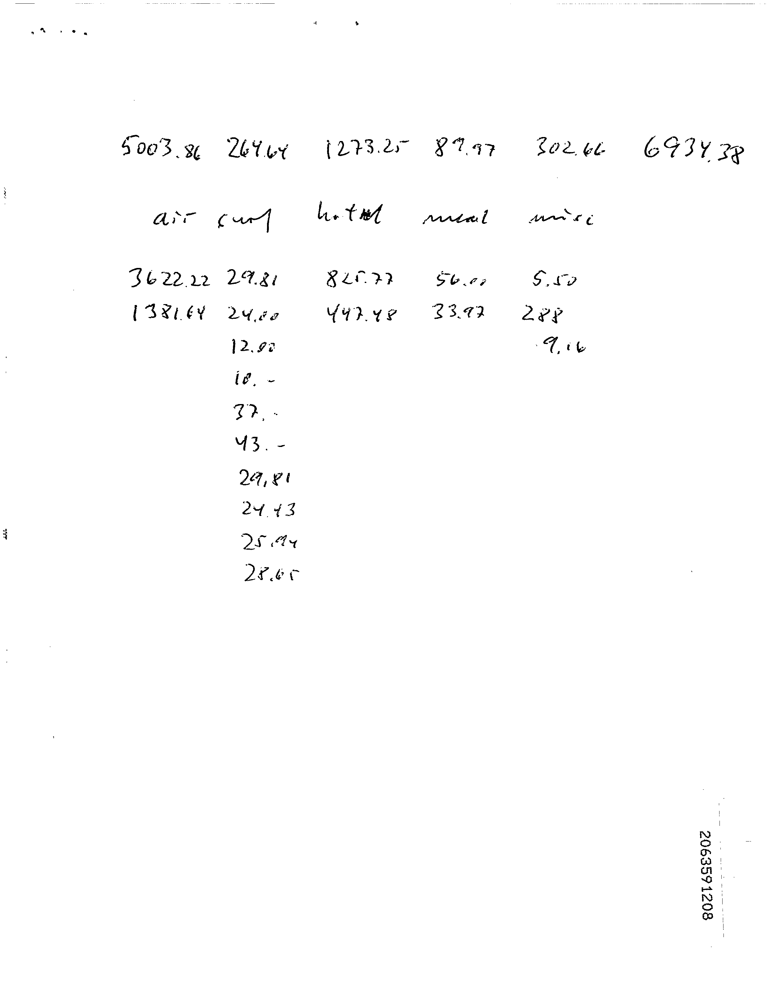 5003.86 264.64 1273.25 89.97 302.66 6934.38
air surf hotel meal misc
3622.22 29.81 825.77 56.00 5.50
1381.64 24.00 447.48 33.97 288
12.00 9.16
10. -
37. -
43. -
29,81
24.43
25.94
28.65
2063591208